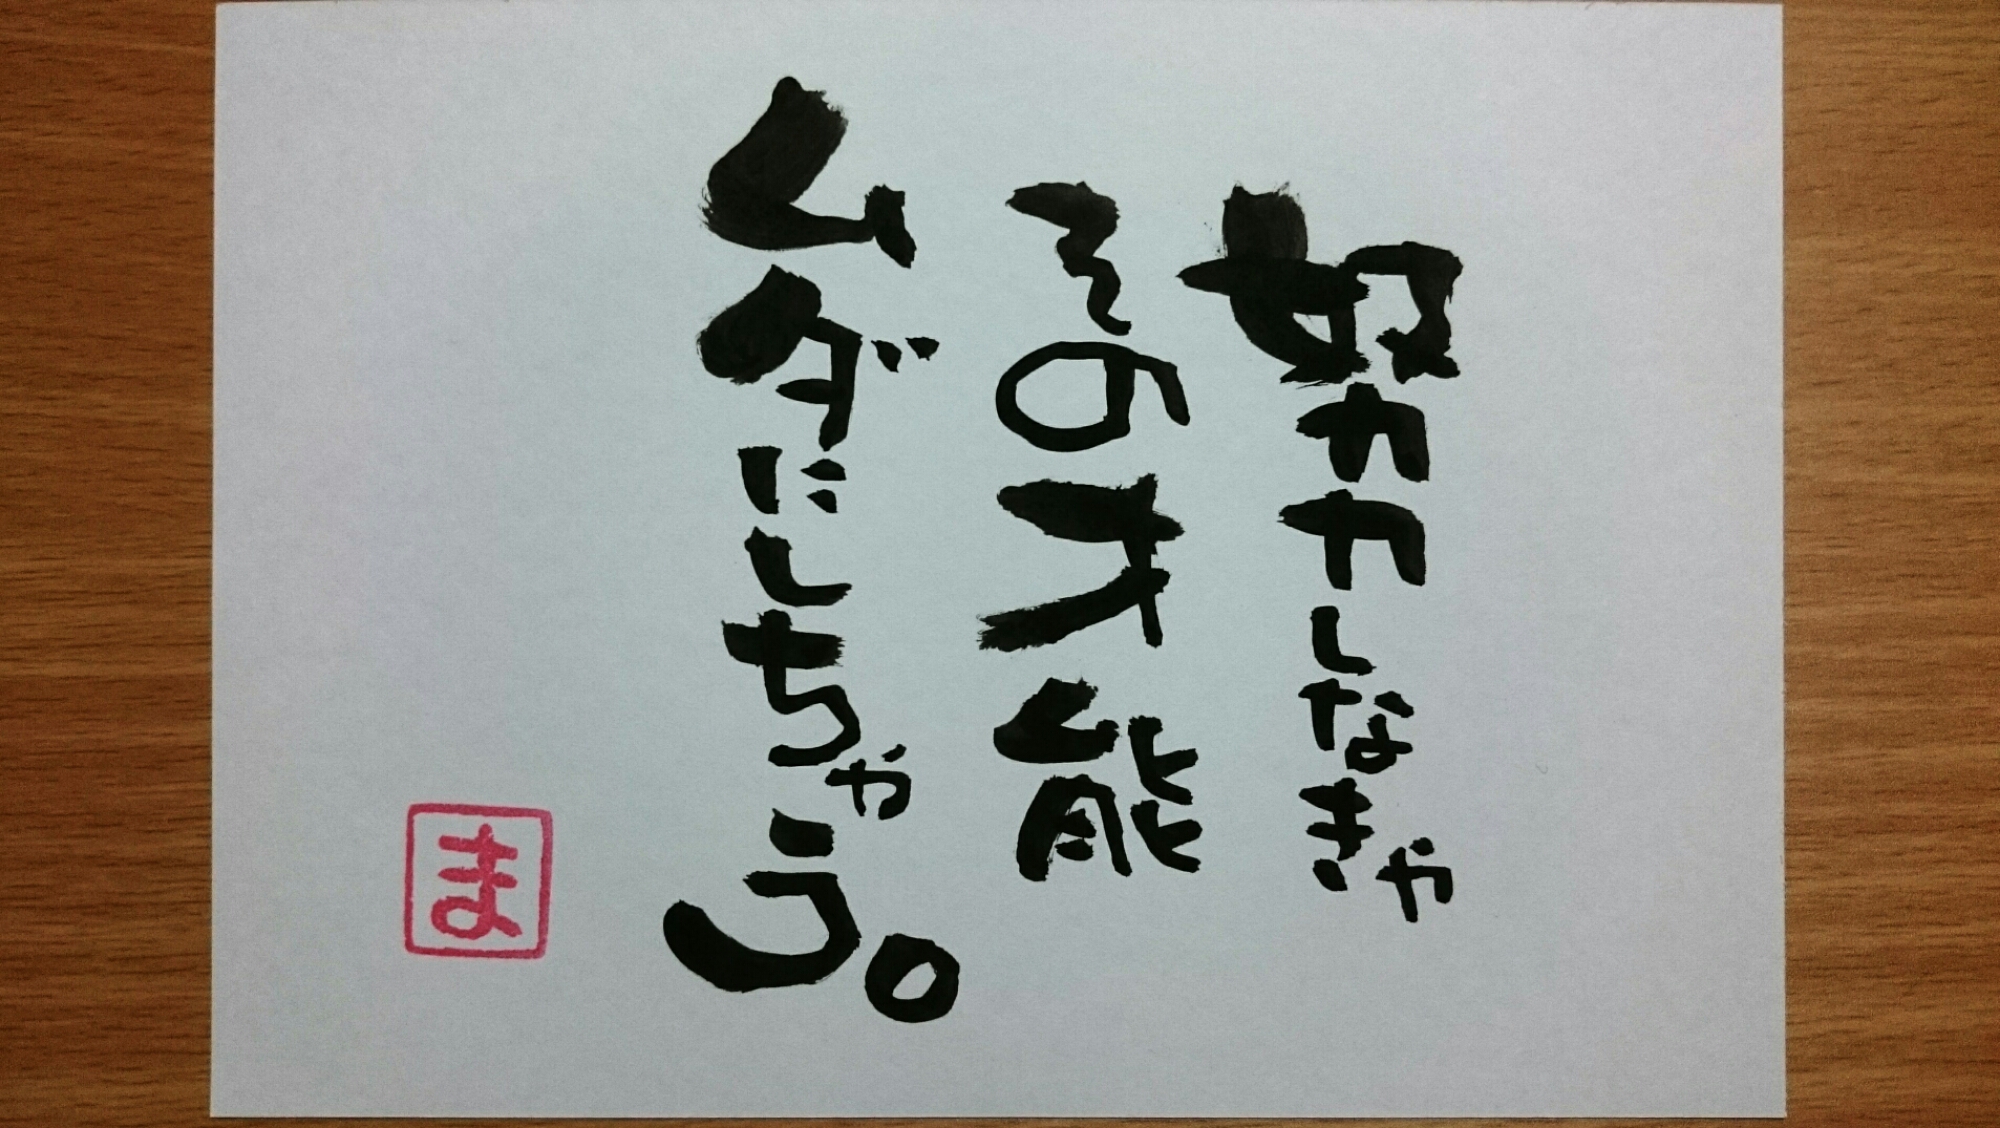 努力しなきゃ
その才能
ムダにしちゃう。
ま